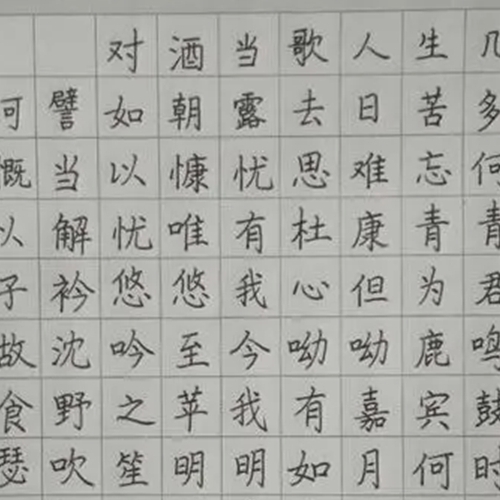 对酒当歌人生几
何譬如朝露去日苦多
慨当以慷忧思难忘何
以解忧唯有杜康青青
子衿悠悠我心但为君
故沈吟至今呦呦鹿鸣
食野之苹我有嘉宾鼓
瑟吹笙明明如月何时